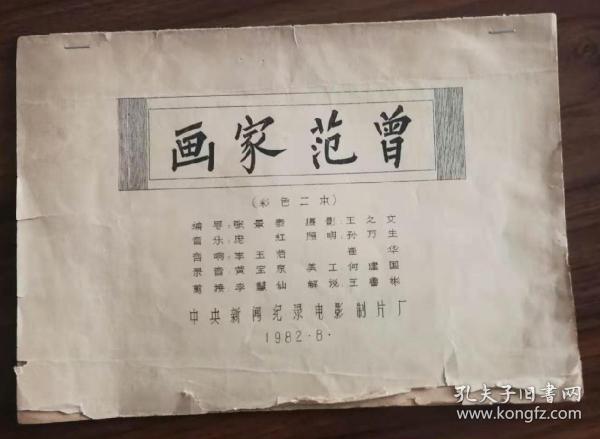 画家范曾
(彩色二本)
编导:张景泰 摄影:王之文
音乐:庞 红 照明:孙万生
音响:李玉 崔 华
录音:黄宝泉 美工:何建国
剪接:李慧仙 解说:王鲁彬
中央新闻纪录电影制片厂
1982·8·
孔夫子旧书网
www.kongfz.com